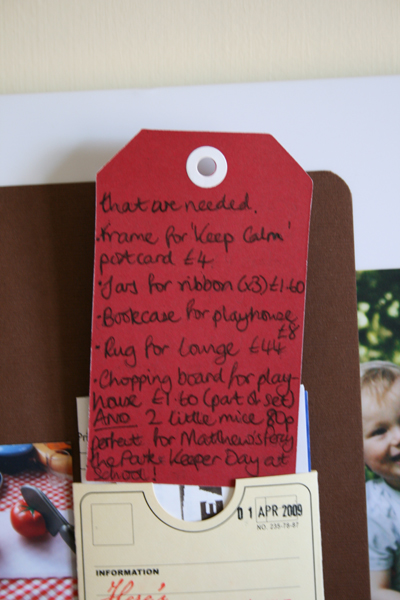 that are needed.
• Frame for 'Keep Calm'
postcard £4
• Jars for ribbon (x3) £1.60
• Bookcase for playhouse
£8
• Rug for Lounge £44
• Chopping board for play-
house £1.60 (part of set)
AND 2 little mice 80p
perfect for Matthew's Percy
the Park Keeper Day at
School!
01 APR 2009
NO. 235-78-87
INFORMATION
Here's